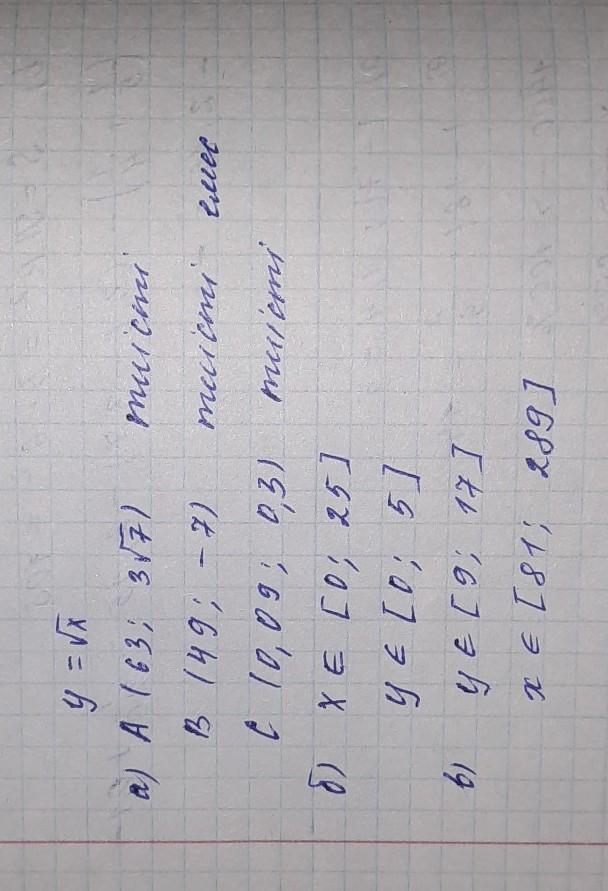 y = √x
а) A (63; 3√7) тиісті
B (49; -7) тиісті емес
C (0,09; 0,3) тиісті
б) x ∈ [0; 25]
y ∈ [0; 5]
в) y ∈ [9; 17]
x ∈ [81; 289]